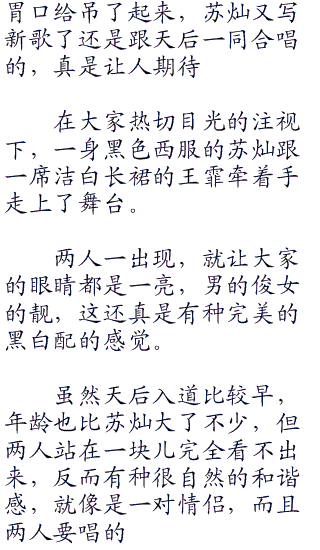 胃口给吊了起来，苏灿又写
新歌了还是跟天后一同合唱
的，真是让人期待
在大家热切目光的注视
下，一身黑色西服的苏灿跟
一席洁白长裙的王霏牵着手
走上了舞台。
两人一出现，就让大家
的眼睛都是一亮，男的俊女
的靓，这还真是有种完美的
黑白配的感觉。
虽然天后入道比较早，
年龄也比苏灿大了不少，但
两人站在一块儿完全看不出
来，反而有种很自然的和谐
感，就像是一对情侣，而且
两人要唱的